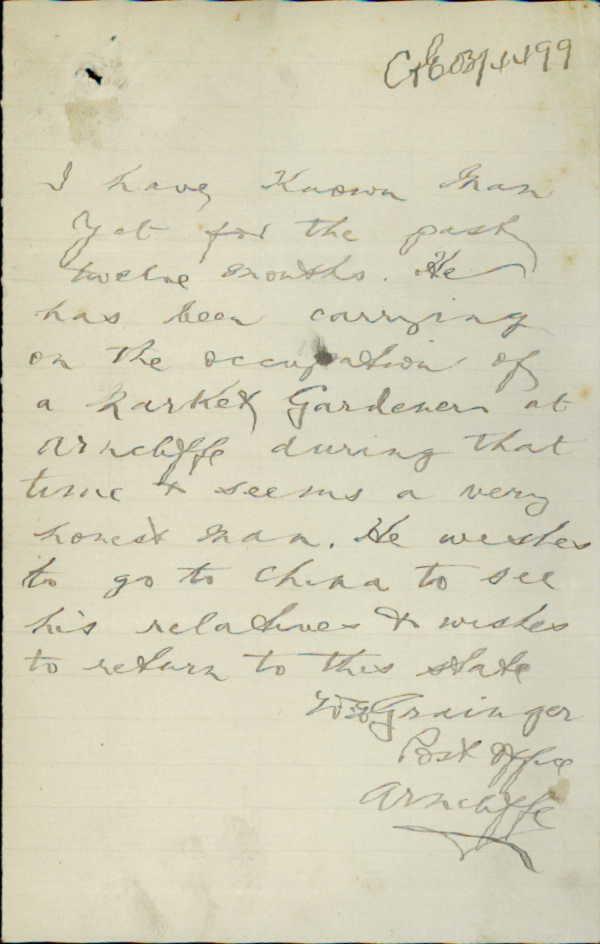 C&E 03/4499
I have Known Man
Yet for the past
twelve months. He
has been carrying
on the occupation of
a Market Gardener at
Arncliffe during that
time & seems a very
honest man. He wishes
to go to China to see
his relatives & wishes
to return to this state
Grainger
Post Office
Arncliffe